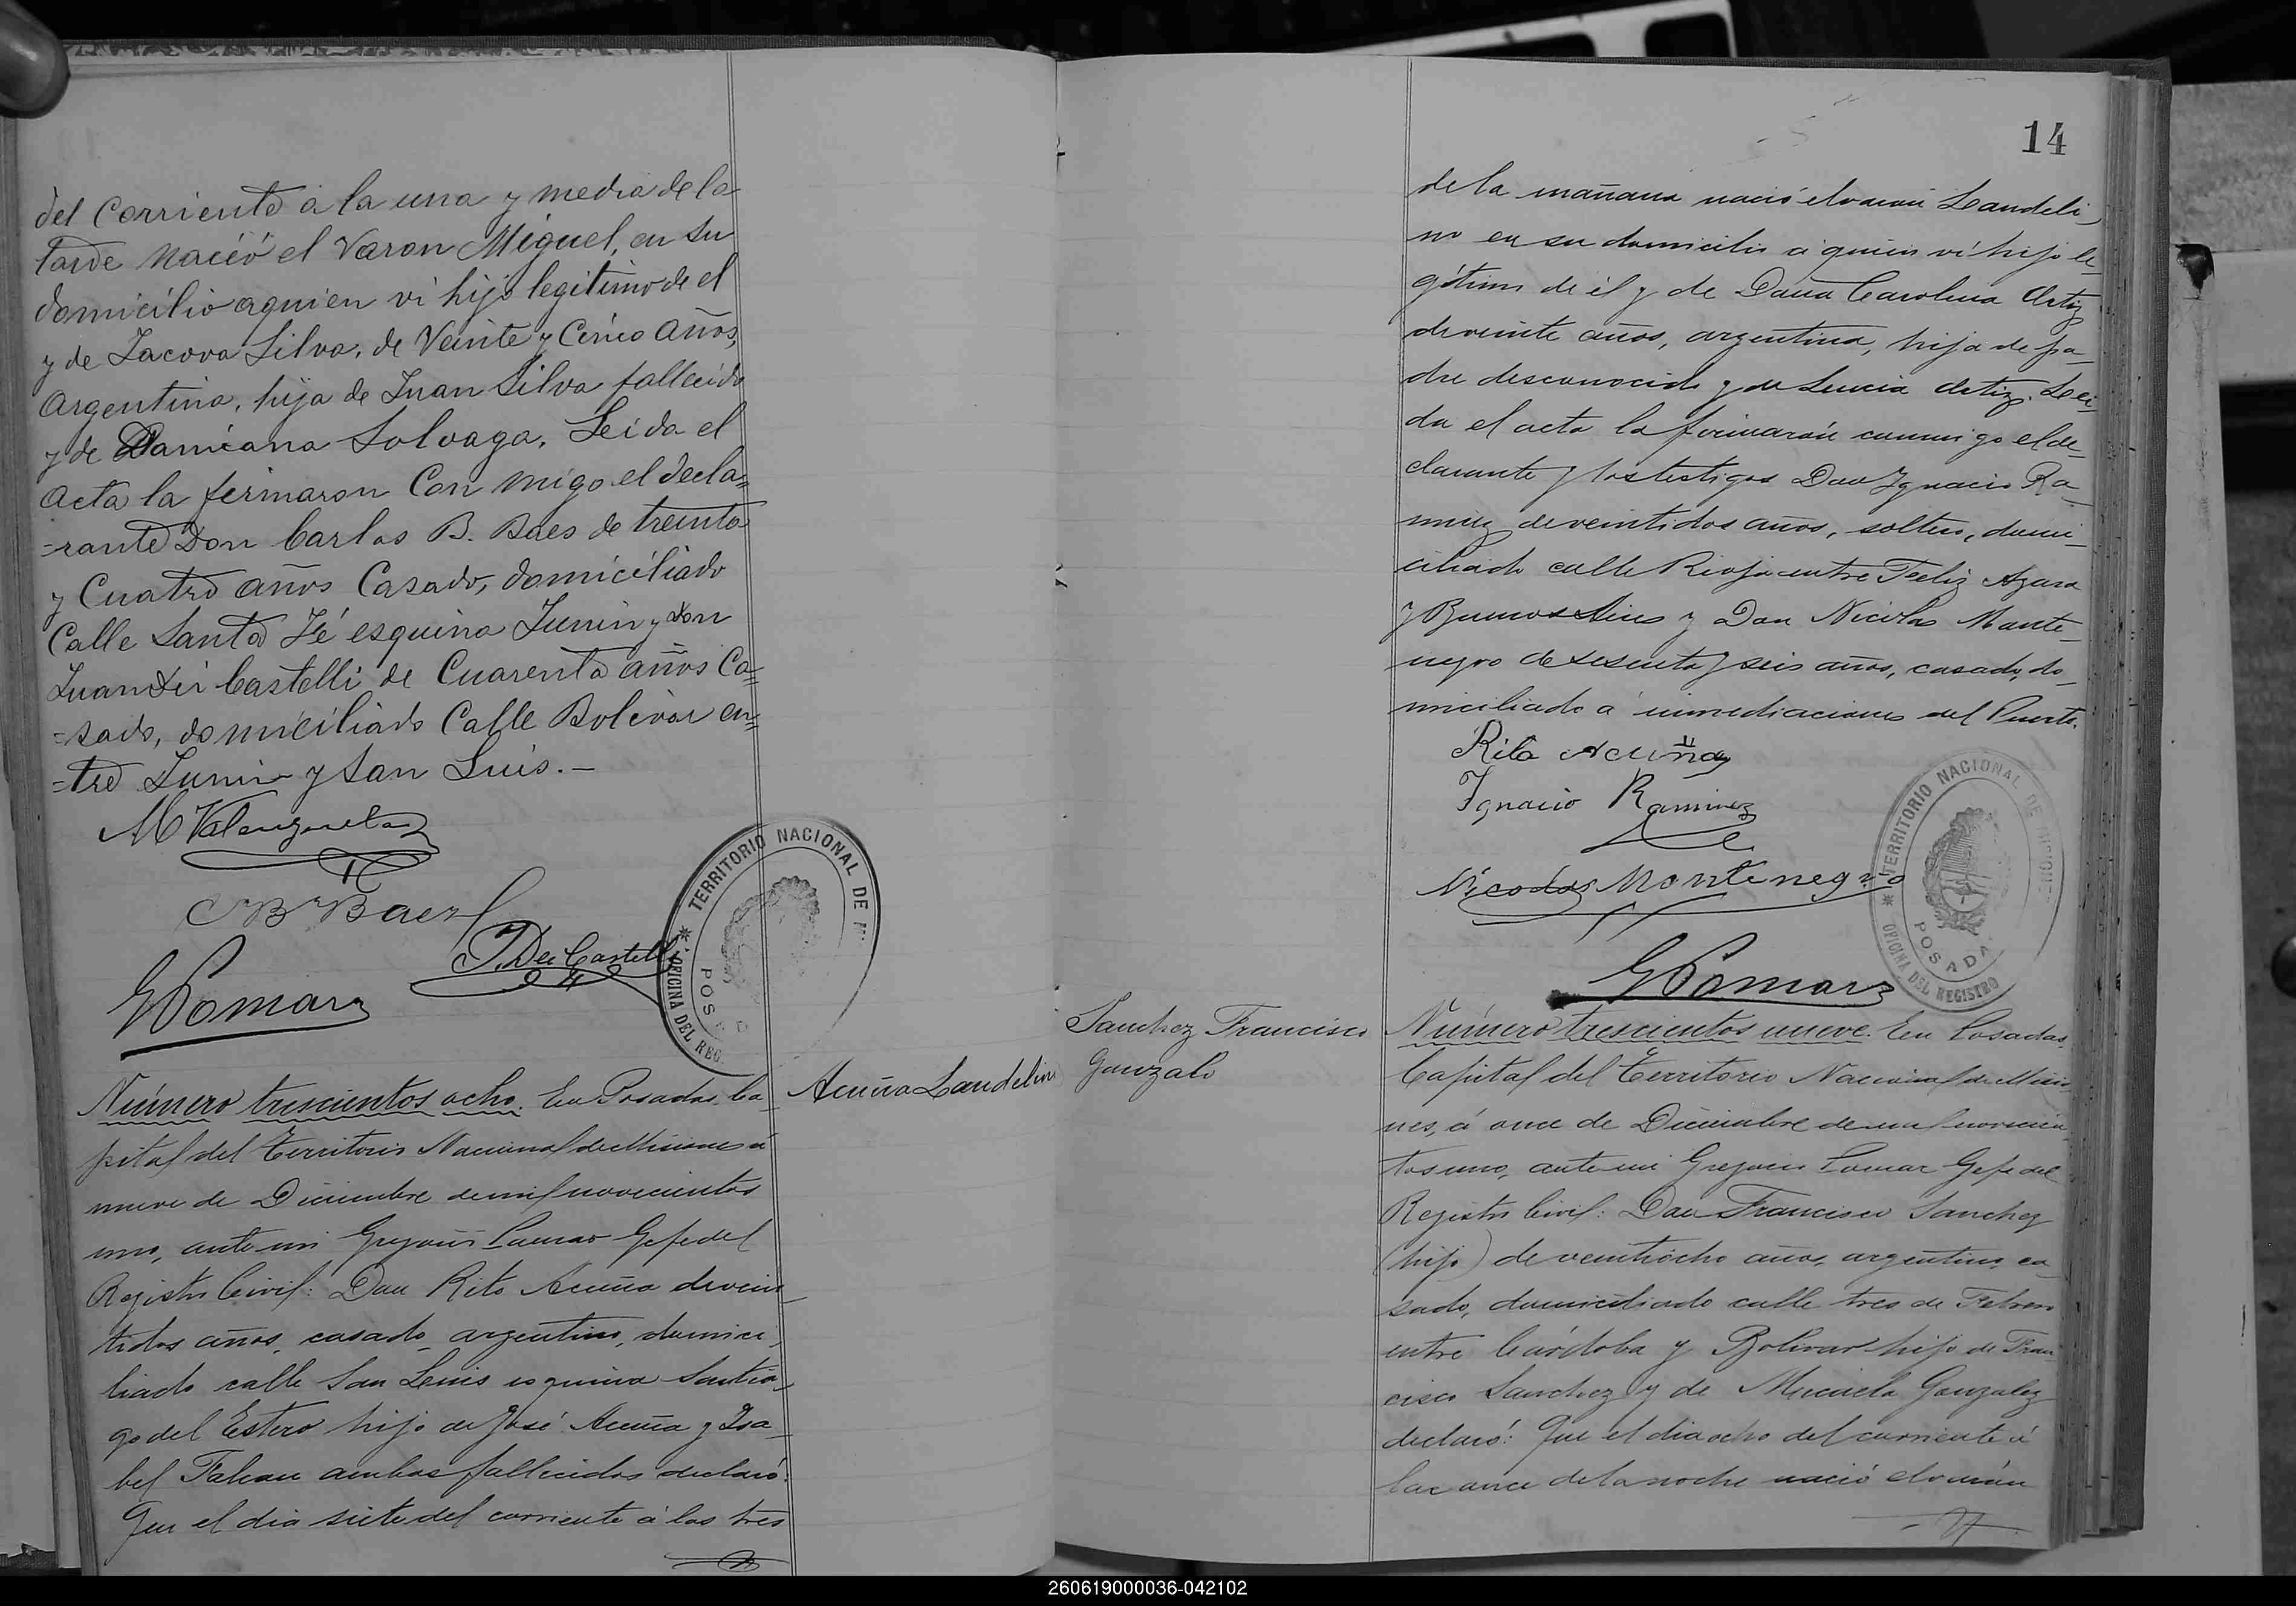 del Corriente a la una y media de la
tarde nacio el Varon Miguel, en su
domicilio aquien vi hijo legitimo de el
y de Jacova Silva, de Veinte y Cinco años,
Argentina, hija de Juan Silva fallecido
y de Damiana Solvaga. Leida el
acta la firmaron Con migo el decla=
=rante Don Carlos B. Baes de treinta
y Cuatro años Casado, domiciliado
Calle Santa Fé esquina Junin y don
Juan Dei Castelli de Cuarenta años Ca=
=sado, domiciliado Calle Bolivar en=
=tre Junin y San Luis.—
M Valenzuela
C B Baez
J. Dei Castelli
G Pomar
TERRITORIO NACIONAL DE M
OFICINA DEL REG.
POSAD
Acuña Landelino
Número trescientos ocho. En Posadas, Ca-
pital del Territorio Nacional de Misiones á
nueve de Diciembre de mil novecientos
uno, ante mi Gregorio Pomar Gefe del
Registro Civil: Don Rito Acuña de vein-
tidos años, casado, argentino, domici-
liado calle San Luis esquina Santia-
go del Estero hijo de José Acuña y Isa-
bel Falcon ambos fallecidos declaró:
Que el dia siete del corriente á las tres
14
de la mañana nació el varon Landeli-
no en su domicilio a quien ví hijo le-
gítimo de él y de Doña Carolina Ortiz
de veinte años, argentina, hija de pa-
dre desconocido y de Lucia Ortiz. Lei-
da el acta la firmarón conmigo el de-
clarante y los testigos Don Ignacio Ra-
mirez de veintidos años, soltero, domi-
ciliado calle Rioja entre Feliz Azara
y Buenos Aires y Don Nicolas Monte-
negro de sesenta y seis años, casado, do-
miciliado á inmediaciones del Puerto.
Rito Acuña
Ignacio Ramirez
Nicolas Montenegro
G Pomar
TERRITORIO NACIONAL DE MISIONES
OFICINA DEL REGISTRO
POSADAS
Sanchez Francisco
Gonzalo
Número trescientos nueve. En Posadas,
Capital del Territorio Nacional de Misio-
nes, á once de Diciembre de mil novecien-
tos uno, ante mi Gregorio Pomar Gefe del
Registro Civil: Don Francisco Sanchez
(hijo) de veintiocho años, argentino, ca-
sado, domiciliado calle tres de Febrero
entre Córdoba y Bolivar hijo de Fran-
cisco Sanchez y de Micaela Gonzalez
declaró: Que el dia ocho del corriente á
las once de la noche nació el varón
260619000036-042102